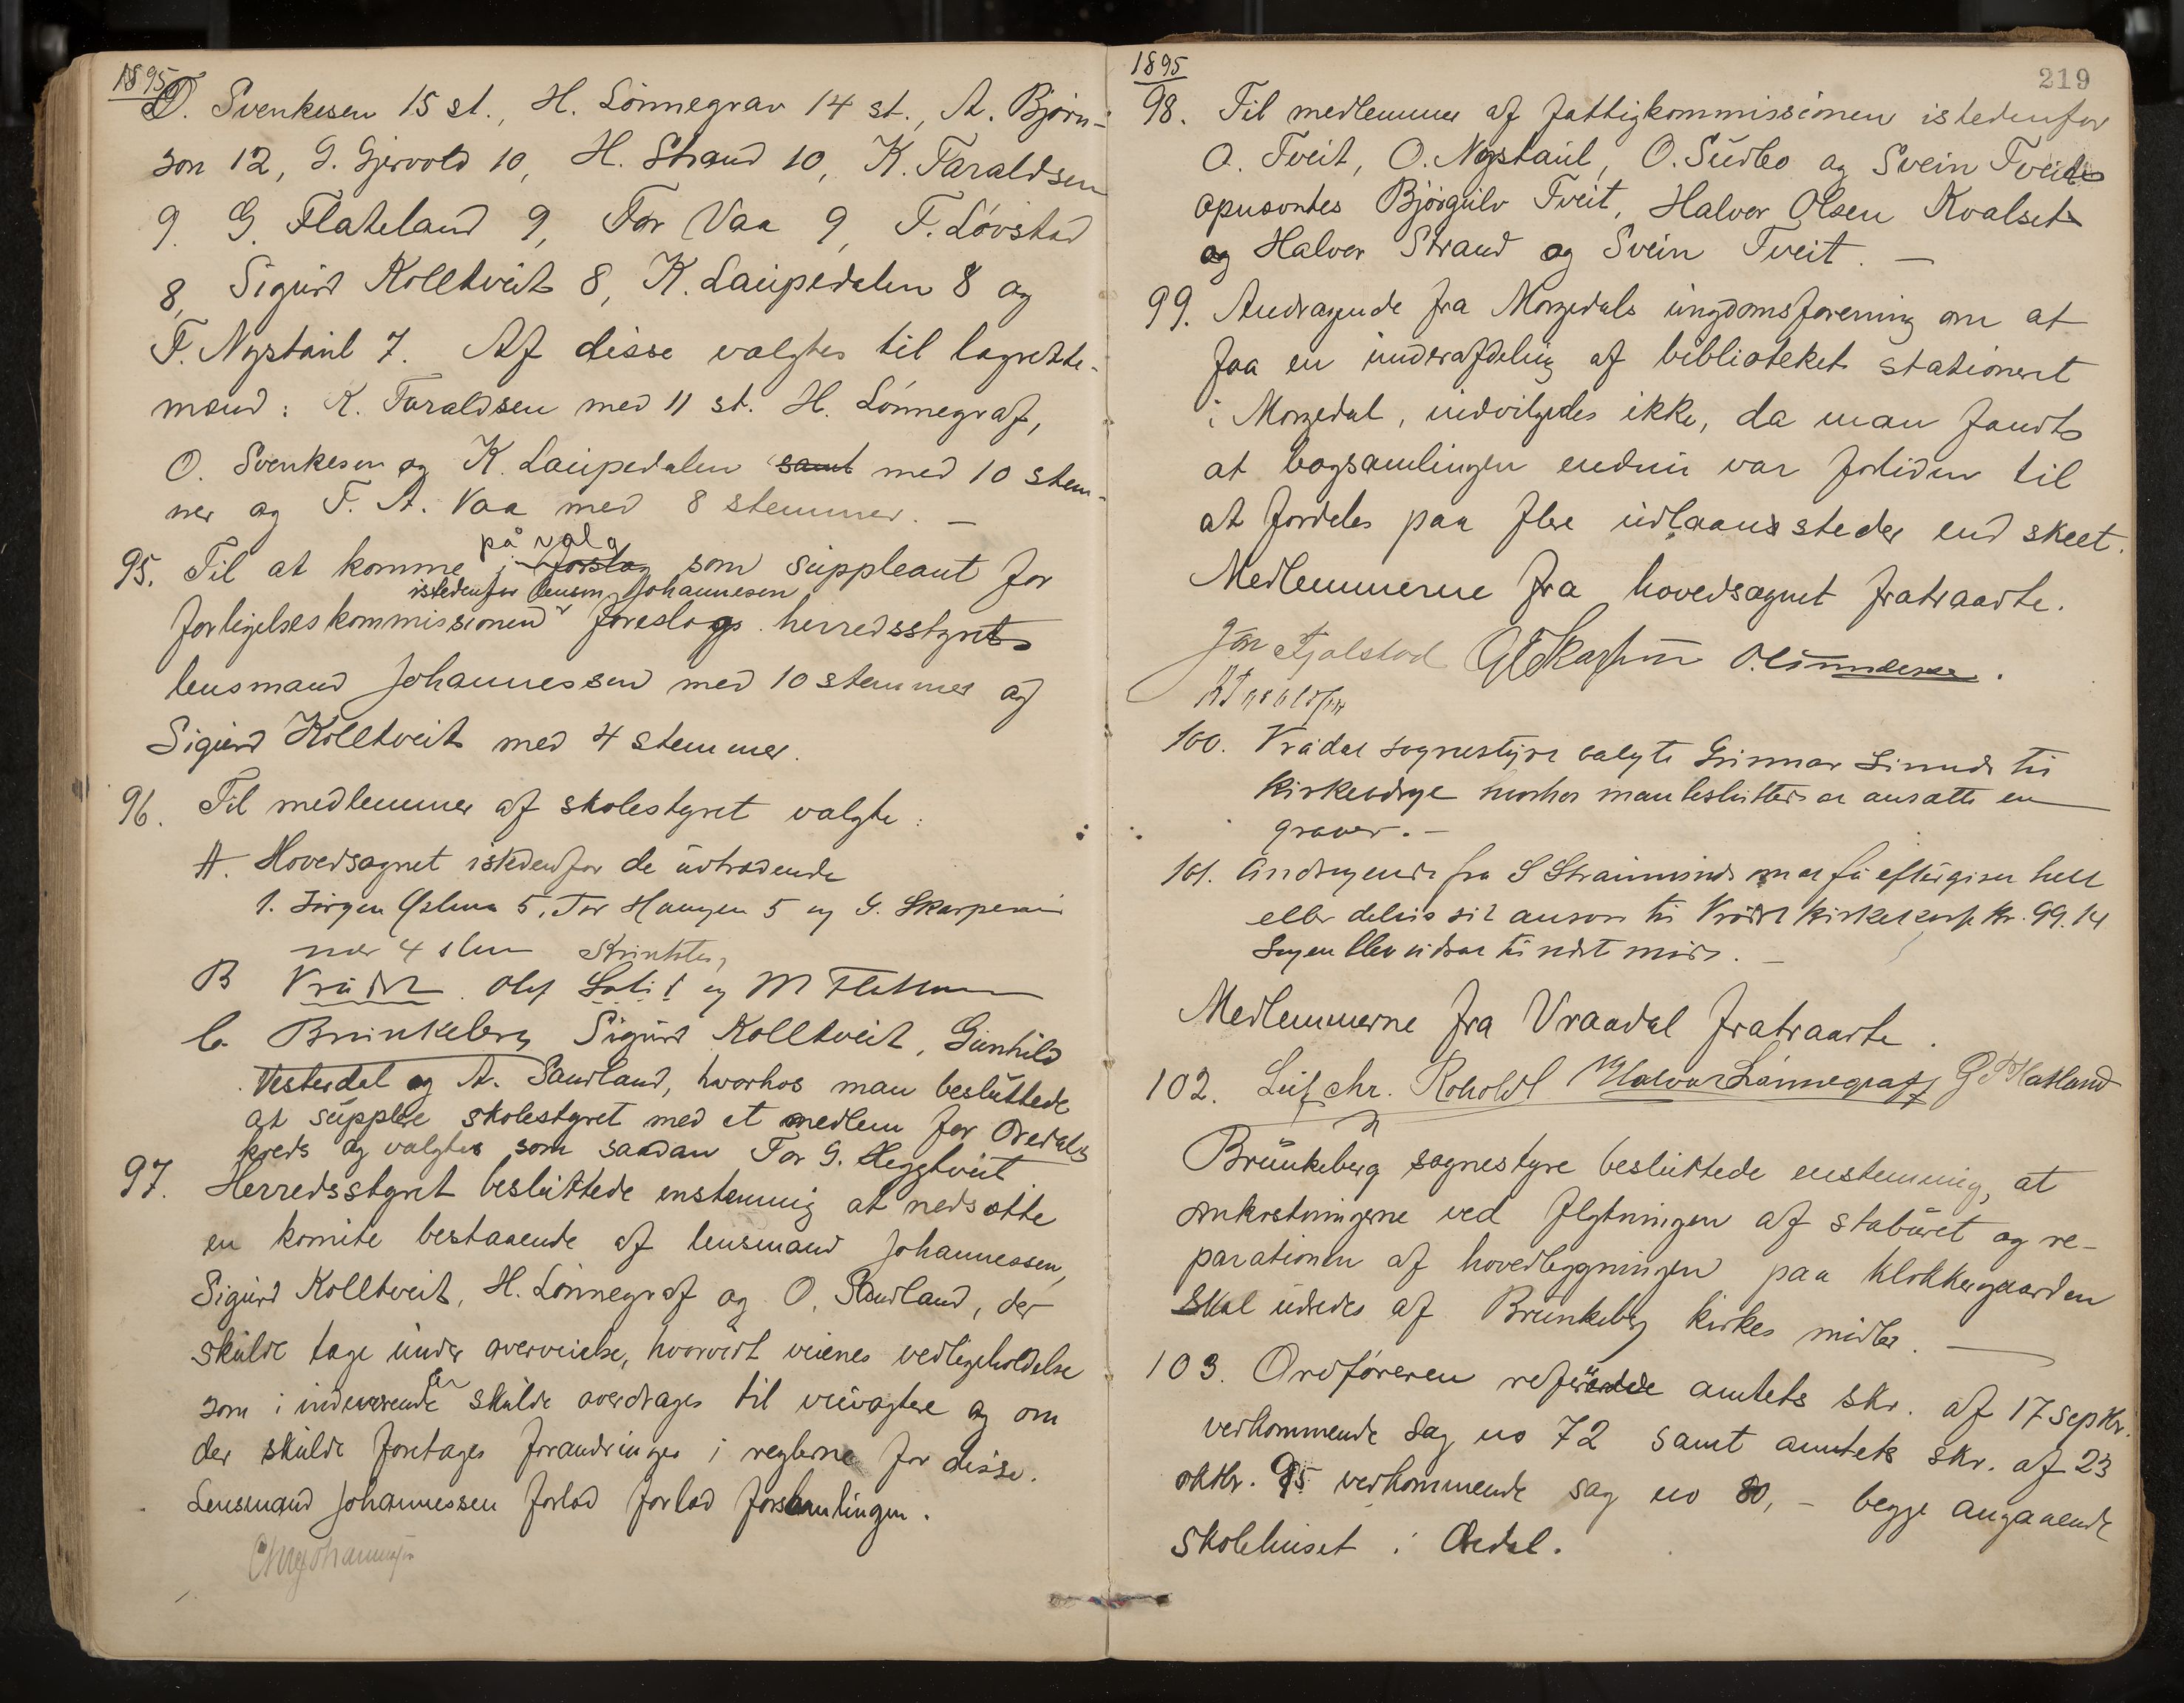 1895
O. Svenkesen 15 st., H. Lönnegrav 14 st., A. Björn-
son 12, G. Gjervold 10, H. Strand 10, K. Taraldsen
9. G. Flateland 9, Tor Vaa 9, T. Lövstad
8, Sigurd Kolltveit 8, K. Laupedalen 8 og
T. Nystaul 7. Af disse valgtes til lagrette-
mænd: K. Taraldsen med 11 st. H. Lönnegraf,
O. Svenkesen og K. Laupedalen samt med 10 stem-
ner og T. A. Vaa med 8 stemmer. —
på valg
95. Til at komme i forslag som suppleant for
istedenfor lensm Johannesen
forligelseskommissionen foreslogs herredsstyret
lensmand Johannessen med 10 stemmer og
Sigurd Kolltveit med 4 stemmer.
96. Til medlemmer af skolestyret valgte:
A. Hovedsognet istedenfor de udtrædende
1. Jörgen 5, Tor Haugen 5 og G. Skarpemo
4
B Olaf og M
C. Brunkeberg Sigurd Kolltveit, Gunhild
Vesterdal og A. Sandland, hvorhos man besluttede
at supplere skolestyret med et medlem for Öredals
kreds og valgtes som saadan Tor G. Heggtveit
97. Herredsstyret besluttede enstemmig at nedsætte
en komite bestaaende af lensmand Johannessen,
Sigurd Kolltveit, H. Lönnegraf og O. Sandland, der
skulde tage under overveielse, hvorvidt veienes vedligeholdelse
aar
som i indeværende skulde overdrages til veivogtere og om
der skulde foretages forandringer i reglerne for disse.
Lensmand Johannessen forlod forlod forsamlingen.
Johannessen
1895
219
98. Til medlemmer af fattigkommissionen istedenfor
O. Tveit, O. Nystaul, O. Sudbö og Svein Tveit
opnævntes Björgulv Tveit, Halvor Olsen Kvalset
og Halvor Strand og Svein Tveit. —
99. Andragende fra Morgedals ungdomsforening om at
faa en underafdeling af biblioteket stationeret
i Morgedal, indvilgedes ikke, da man fandt
at bogsamlingen endnu var forliden til
at fordeles paa flere udlaanssteder end skeet.
Medlemmerne fra hovedsognet fratraadte.
Jon Fjalestad
100. Vrådal sognestyre valgte Gunnar til
kirkeværge hvorhos man besluttet at ansætte en
graver. —
101. Andragende fra S Straumsnes om at få eftergiven helt
eller delvis sit ansvar til Vrådal kirkekasse kr. 99.14
Sagen blev udsat til næste møde. —
Medlemmerne fra Vraadal fratraadte.
102. Leif Chr. Roholdt Halvor Lönnegraff G Flatland
Brunkeberg sognestyre besluttede enstemmig, at
omkostningerne ved flytningen af staburet og re-
parationen af hovedbygningen paa klokkergaarden
skal udredes af Brunkeberg kirkes midler. —
103. Ordföreren refererede amtets skr. af 17 septbr.
vedkommende sag no 72 samt amtets skr. af 23
oktbr. 95 vedkommende sag no 80, — begge angaaende
skolehuset i Öredal.